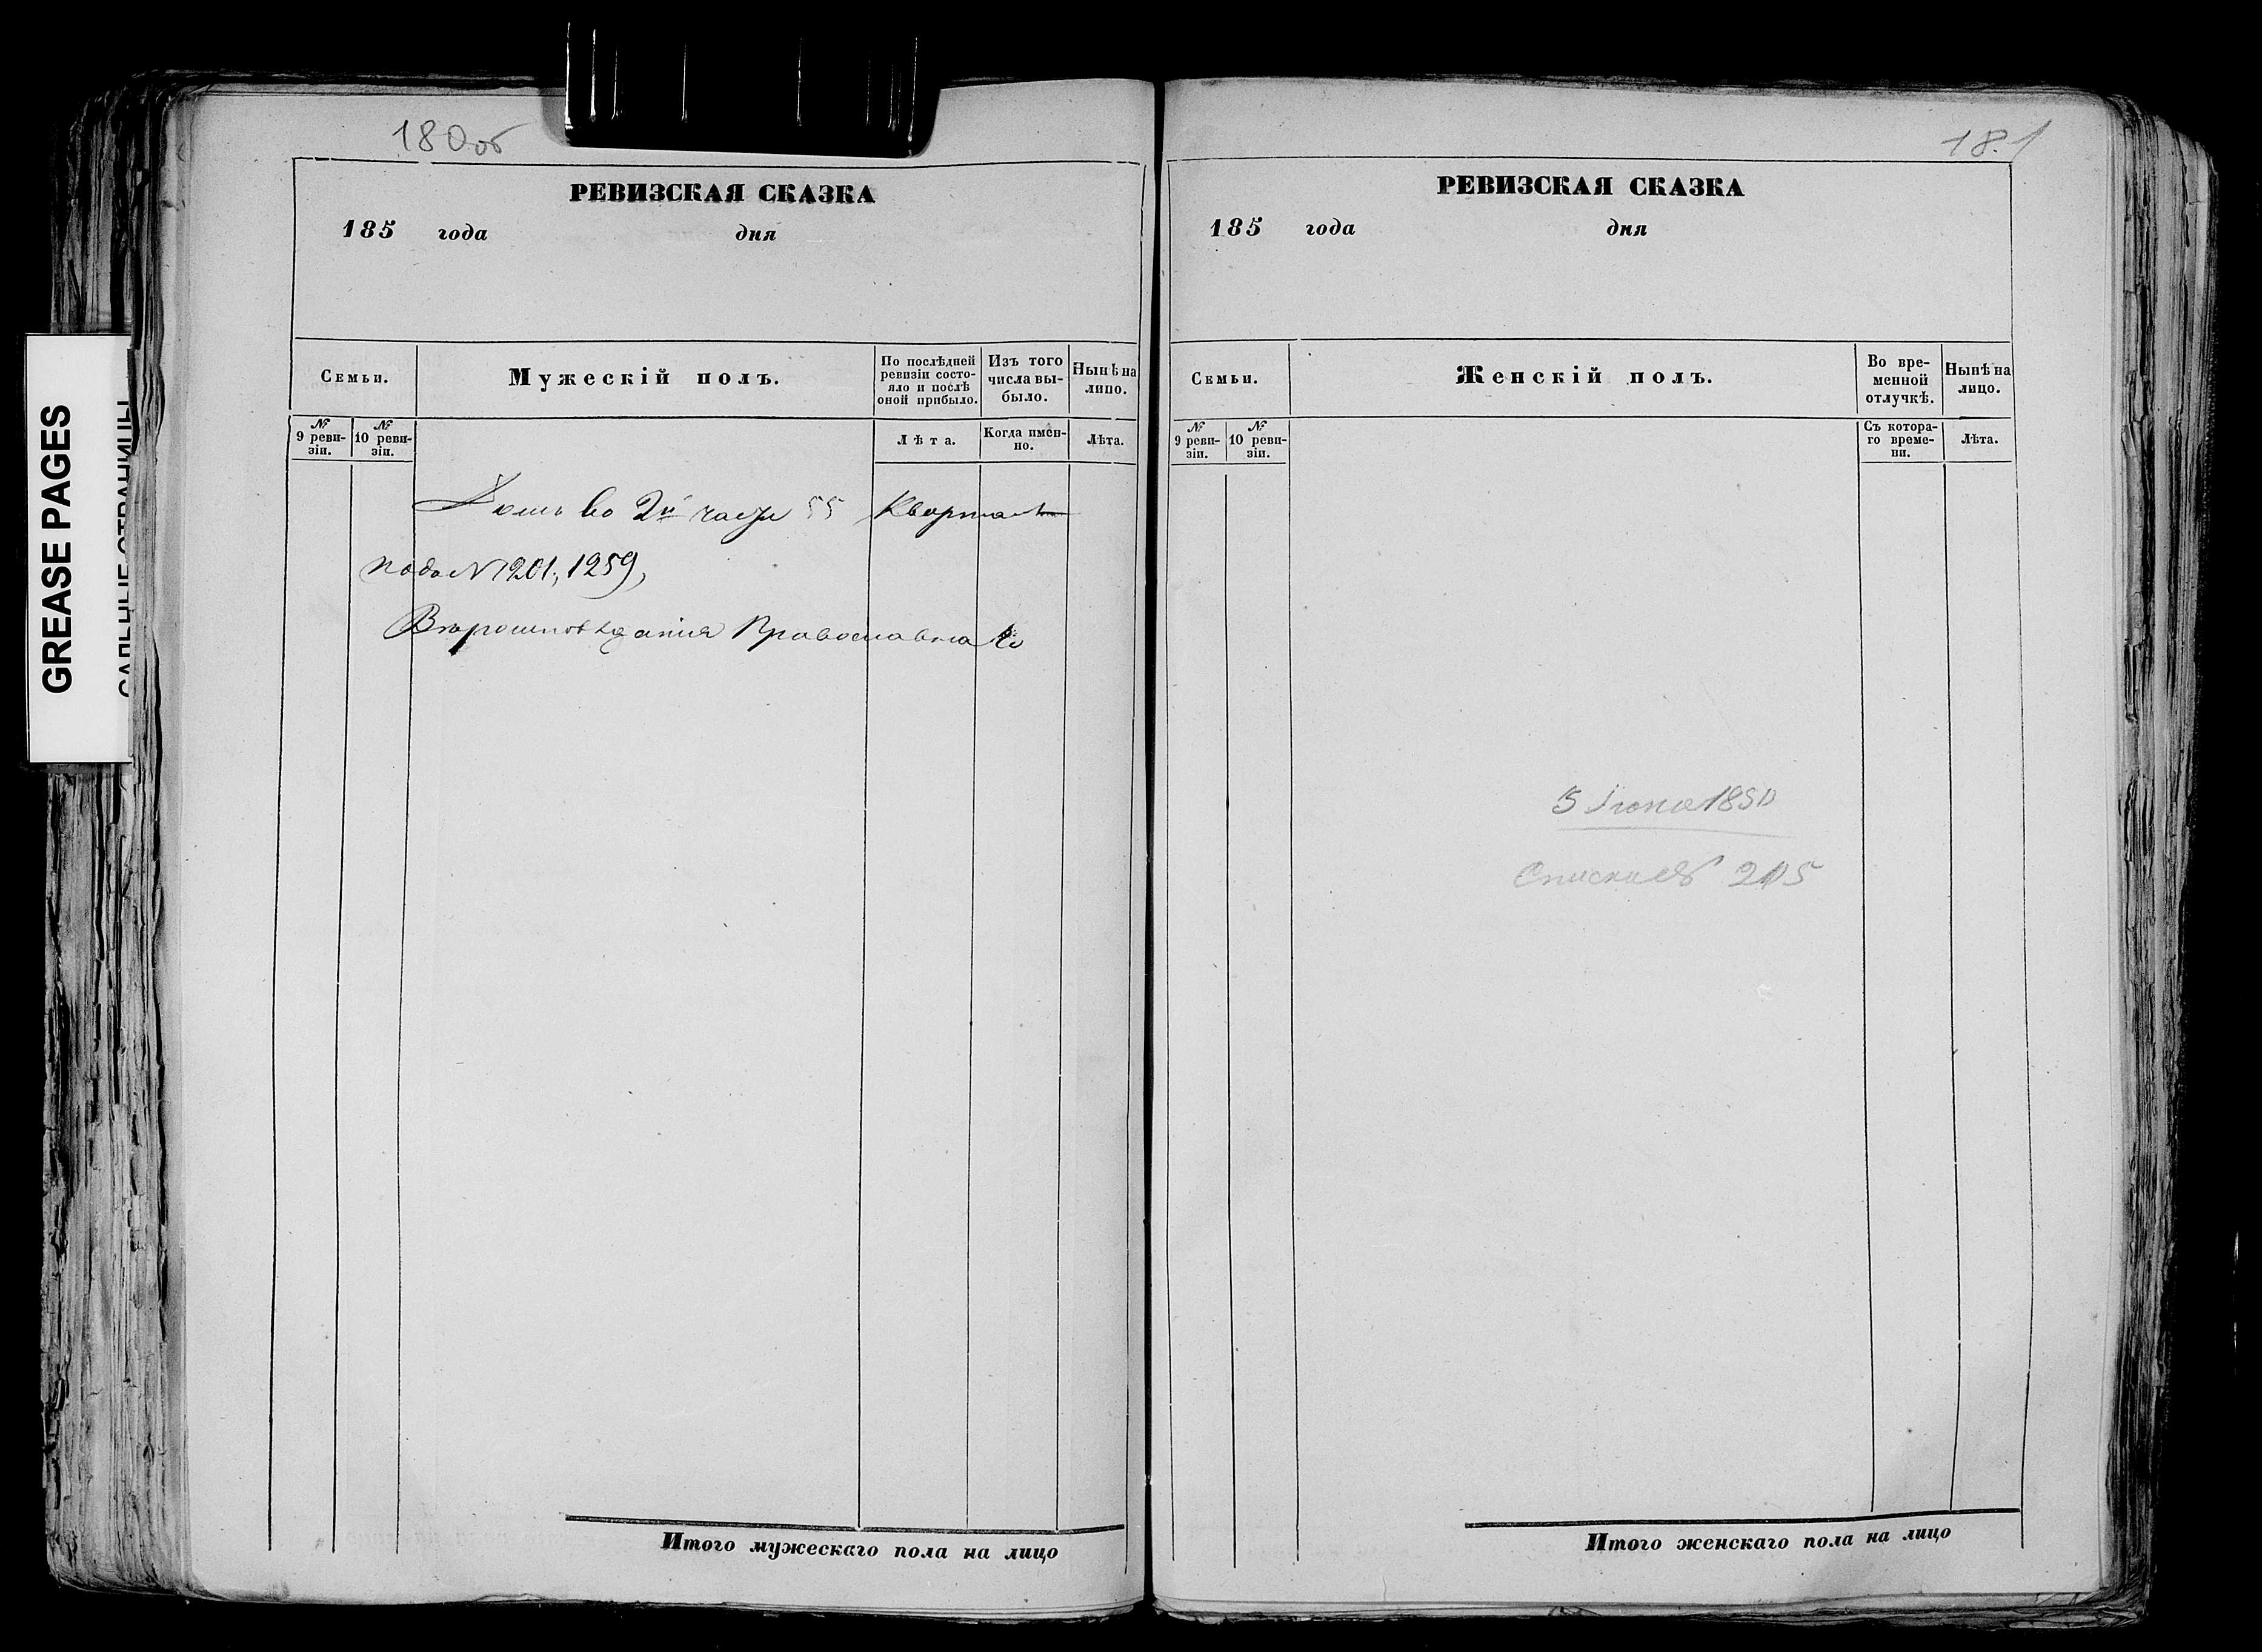 GREASE PAGES
180 об
РЕВИЗСКАЯ СКАЗКА
185 года дня
Семьи.
Мужескій полъ.
По послѣдней ревизіи состо-
яло и послѣ
оной прибыло.
Изъ того
числа вы-
было.
Нынѣ на
лицо.
№
9 реви-
зіи.
№
10 реви-
зіи.
Лѣта.
Когда имен-
но.
Лѣта.
Домъ во 2й части 55 Кварталѣ
подъ N 1201, 1259,
Вѣроисповѣданія Православнаго
Итого мужескаго пола на лицо
181
РЕВИЗСКАЯ СКАЗКА
185 года дня
Семьи.
Женскій полъ.
Во вре-
менной
отлучкѣ.
Нынѣ на
лицо.
№
9 реви-
зіи.
№
10 реви-
зіи.
Съ котора-
го време-
ни.
Лѣта.
5 Іюня 1850
205
Итого женскаго пола на лицо